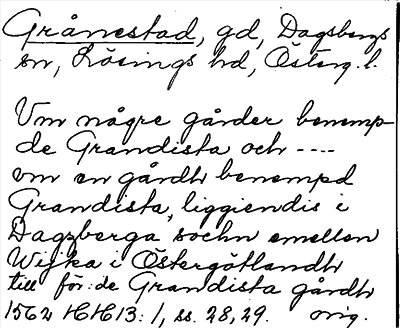 Grånestad, gd, Dagsbergs
sn, Lösings hd, Österg. l.
Um någre gårder benemp-
de Grandista och ----
um en gårdh benempd
Grandista, liggiendis i
Dagzberga sochn emellan
Wijka i Östergötlandh
till för:de Grandista gårdh
1562 HH 13:1, ss. 28, 29. orig.